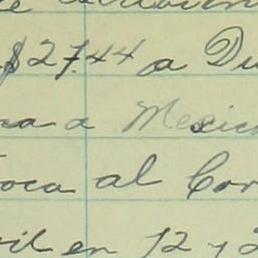 $27.44 a Du
ra a Mexico
oca al Cor
il en 12 y 2